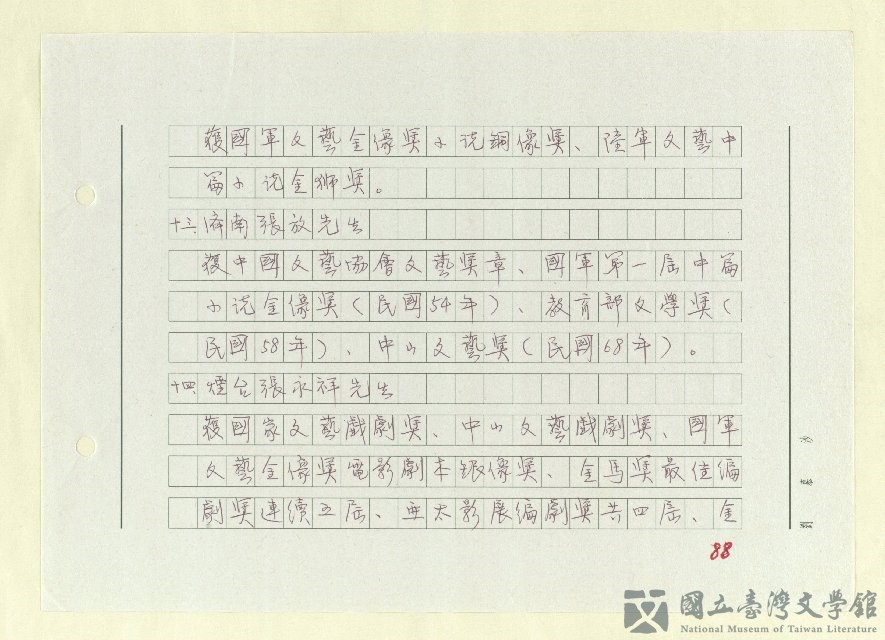 獲國軍文藝金像獎小說銅像獎、陸軍文藝中
篇小說金獅獎。
十三、濟南張放先生
獲中國文藝協會文藝獎章、國軍第一屆中篇
小說金像獎(民國54年)、教育部文學獎(
民國58年)、中山文藝獎(民國68年)。
十四、煙台張永祥先生
獲國家文藝戲劇獎、中山文藝戲劇獎、國軍
文藝金像獎電影劇本銀像獎、金馬獎最佳編
劇獎連續五屆、亞太影展編劇獎共四屆、金
88
國立臺灣文學館
National Museum of Taiwan Literature